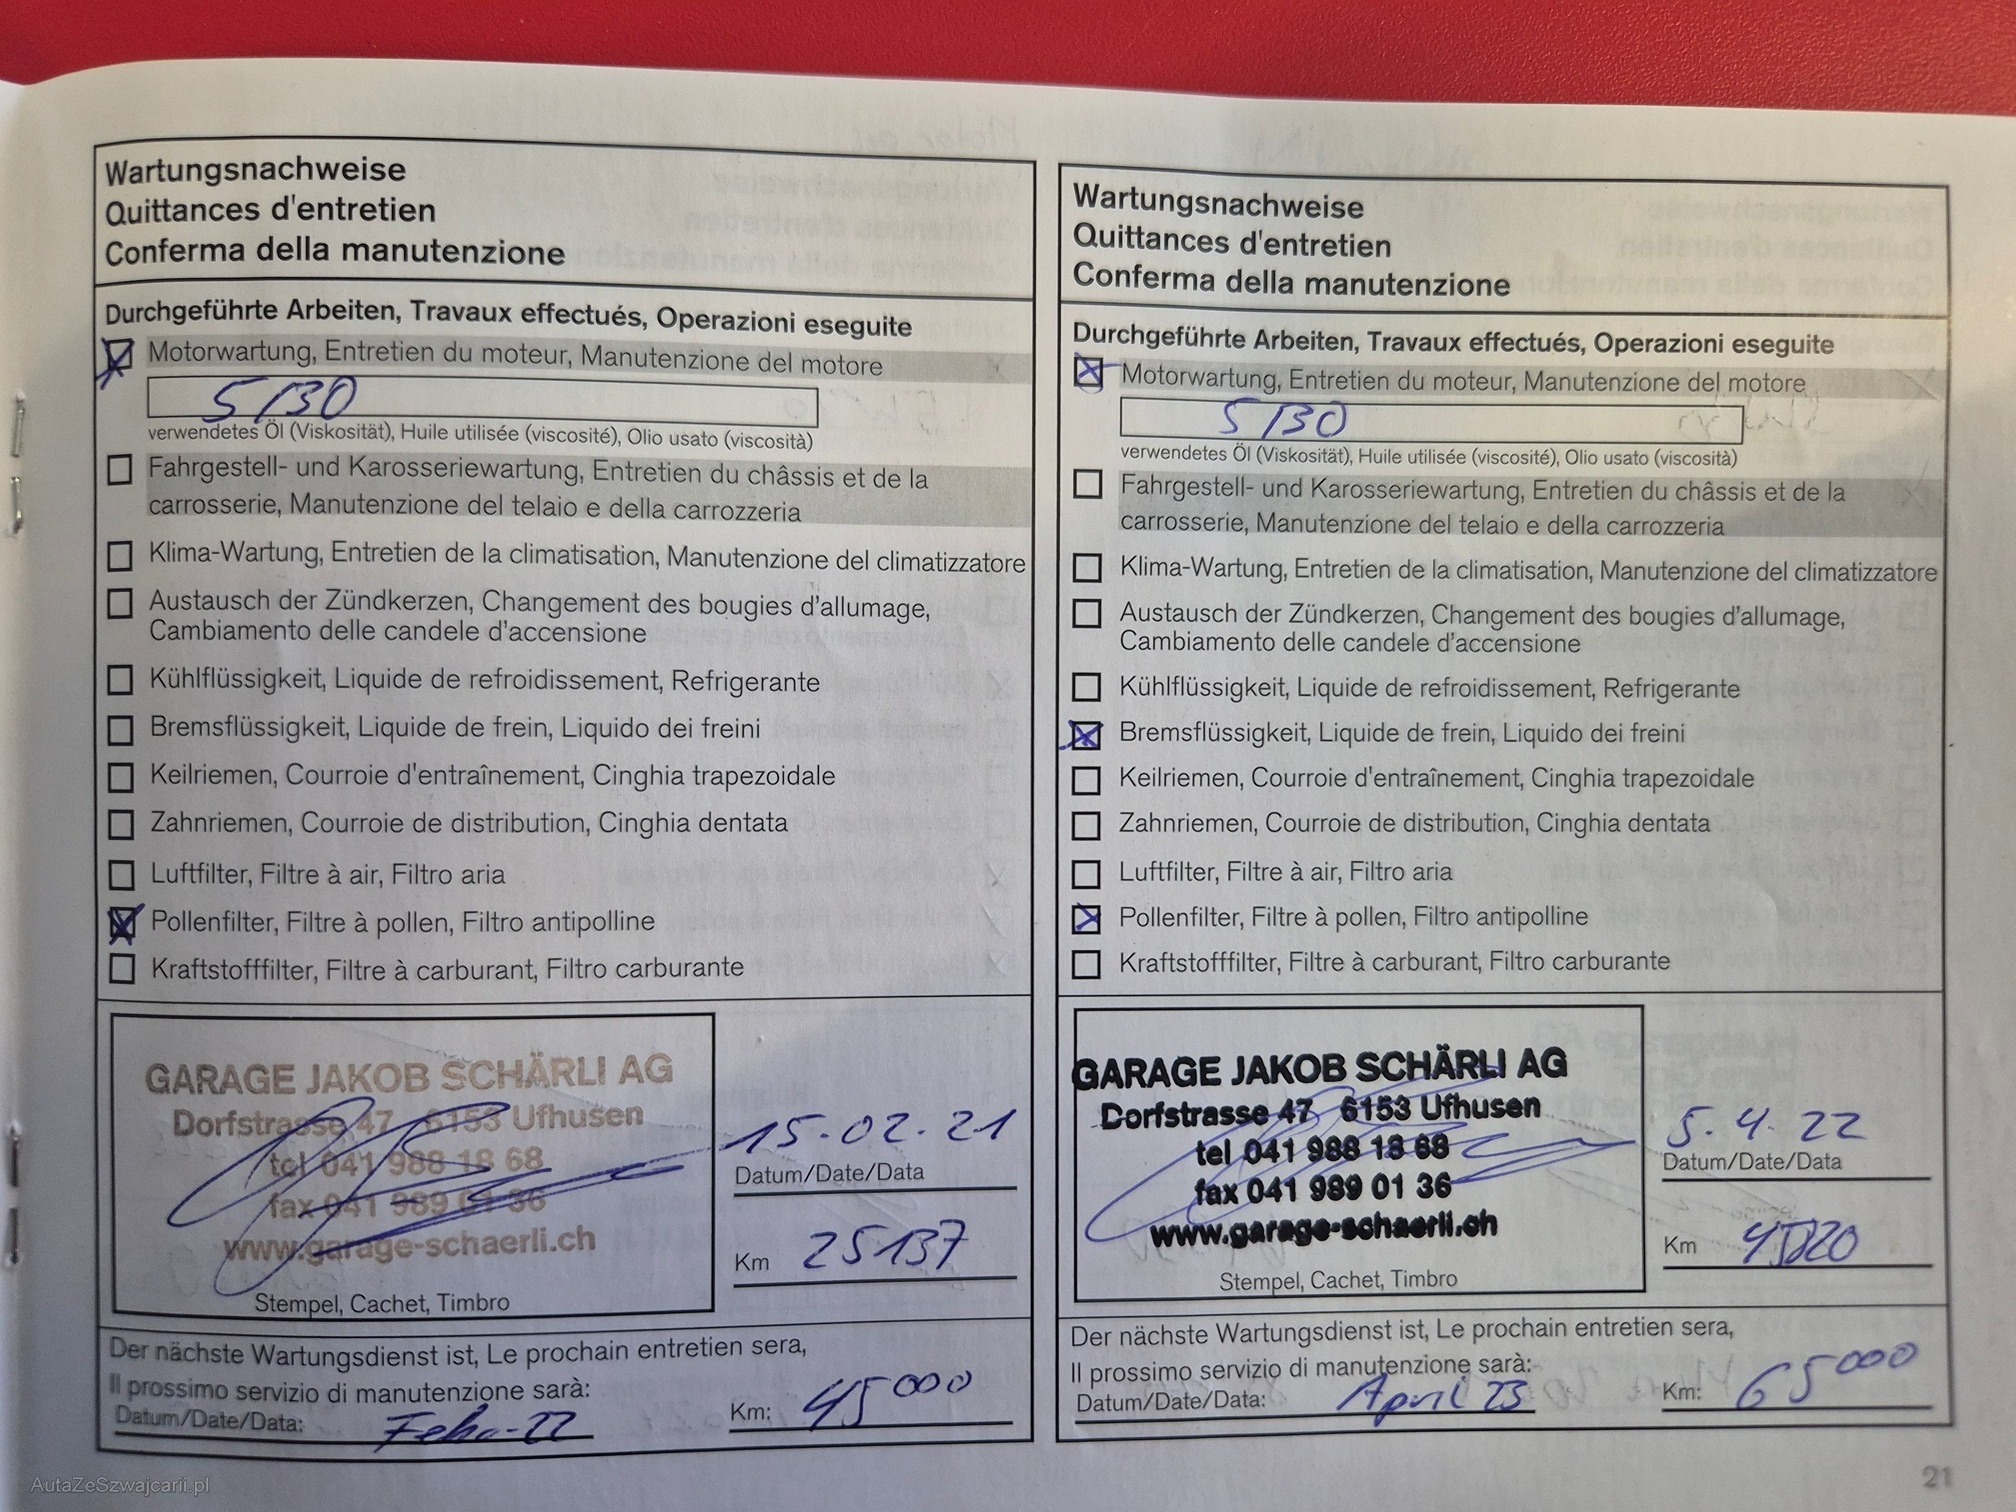 Wartungsnachweise
Quittances d'entretien
Conferma della manutenzione
Durchgeführte Arbeiten, Travaux effectués, Operazioni eseguite
Motorwartung, Entretien du moteur, Manutenzione del motore
5/30
verwendetes Öl (Viskosität), Huile utilisée (viscosité), Olio usato (viscosità)
Fahrgestell- und Karosseriewartung, Entretien du châssis et de la
carrosserie, Manutenzione del telaio e della carrozzeria
Klima-Wartung, Entretien de la climatisation, Manutenzione del climatizzatore
Austausch der Zündkerzen, Changement des bougies d'allumage,
Cambiamento delle candele d'accensione
Kühlflüssigkeit, Liquide de refroidissement, Refrigerante
Bremsflüssigkeit, Liquide de frein, Liquido dei freini
Keilriemen, Courroie d'entraînement, Cinghia trapezoidale
Zahnriemen, Courroie de distribution, Cinghia dentata
Luftfilter, Filtre à air, Filtro aria
Pollenfilter, Filtre à pollen, Filtro antipolline
Kraftstofffilter, Filtre à carburant, Filtro carburante
GARAGE JAKOB SCHÄRLI AG
Dorfstrasse 47 6153 Ufhusen
tel 041 988 18 68
fax 041 989 01 36
www.garage-schaerli.ch
Stempel, Cachet, Timbro
15.02.21
Datum/Date/Data
Km 25137
Der nächste Wartungsdienst ist, Le prochain entretien sera,
Il prossimo servizio di manutenzione sarà:
Datum/Date/Data: Febr-22 Km: 45000
Wartungsnachweise
Quittances d'entretien
Conferma della manutenzione
Durchgeführte Arbeiten, Travaux effectués, Operazioni eseguite
Motorwartung, Entretien du moteur, Manutenzione del motore
5/30
verwendetes Öl (Viskosität), Huile utilisée (viscosité), Olio usato (viscosità)
Fahrgestell- und Karosseriewartung, Entretien du châssis et de la
carrosserie, Manutenzione del telaio e della carrozzeria
Klima-Wartung, Entretien de la climatisation, Manutenzione del climatizzatore
Austausch der Zündkerzen, Changement des bougies d'allumage,
Cambiamento delle candele d'accensione
Kühlflüssigkeit, Liquide de refroidissement, Refrigerante
Bremsflüssigkeit, Liquide de frein, Liquido dei freini
Keilriemen, Courroie d'entraînement, Cinghia trapezoidale
Zahnriemen, Courroie de distribution, Cinghia dentata
Luftfilter, Filtre à air, Filtro aria
Pollenfilter, Filtre à pollen, Filtro antipolline
Kraftstofffilter, Filtre à carburant, Filtro carburante
GARAGE JAKOB SCHÄRLI AG
Dorfstrasse 47 6153 Ufhusen
tel 041 988 18 68
fax 041 989 01 36
www.garage-schaerli.ch
Stempel, Cachet, Timbro
5.4.22
Datum/Date/Data
Km
Der nächste Wartungsdienst ist, Le prochain entretien sera,
Il prossimo servizio di manutenzione sarà:
Datum/Date/Data: April 23 Km: 65000
21
AutaZeSzwajcarii.pl